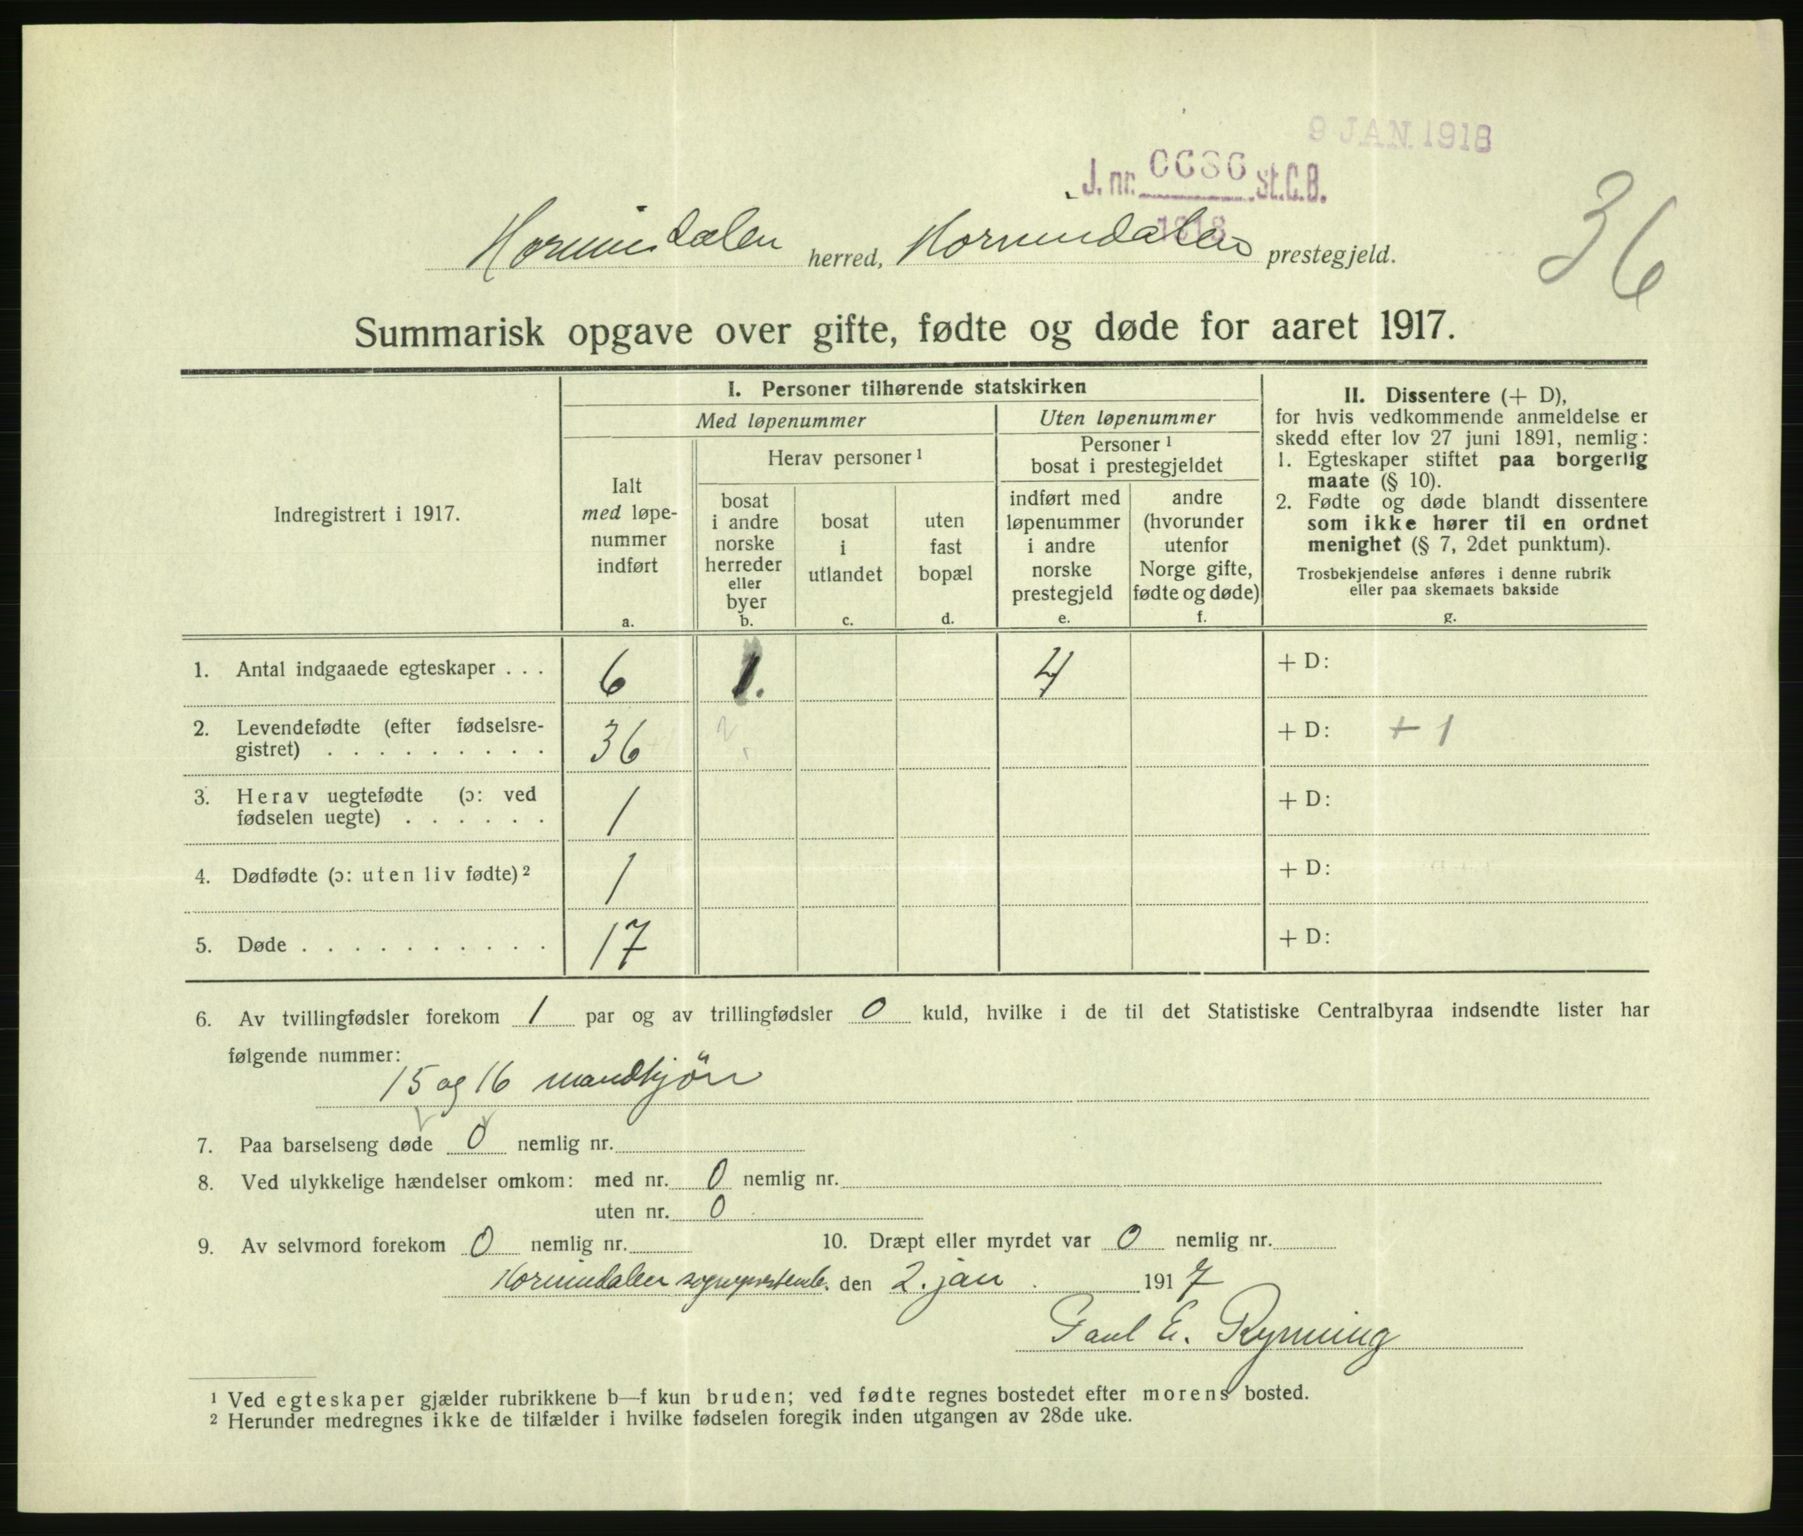 9 JAN. 1918
J. nr. 0036 St.C.B.
1918
36
Hornindalen herred, Hornindalen prestegjeld.
Summarisk opgave over gifte, fødte og døde for aaret 1917.
Indregistrert i 1917.
I. Personer tilhørende statskirken
Med løpenummer
Uten løpenummer
Ialt
med løpe-
nummer
indført
a.
Herav personer ¹
bosat
i andre
norske
herreder
eller
byer
b.
bosat
i
utlandet
c.
uten
fast
bopæl
d.
Personer ¹
bosat i prestegjeldet
indført med
løpenummer
i andre
norske
prestegjeld
e.
andre
(hvorunder
utenfor
Norge gifte,
fødte og døde)
f.
II. Dissentere (+ D),
for hvis vedkommende anmeldelse er
skedd efter lov 27 juni 1891, nemlig:
1. Egteskaper stiftet paa borgerlig
maate (§ 10).
2. Fødte og døde blandt dissentere
som ikke hører til en ordnet
menighet (§ 7, 2det punktum).
Trosbekjendelse anføres i denne rubrik
eller paa skemaets bakside
g.
1. Antal indgaaede egteskaper . . . 6 1. 4 + D:
2. Levendefødte (efter fødselsre-
gistret) . . . . . . . . . 36 2 + D: + 1
3. Herav uegtefødte (ɔ: ved
fødselen uegte) . . . . . . 1 + D:
4. Dødfødte (ɔ: uten liv fødte) ² 1 + D:
5. Døde . . . . . . . . . . 17 + D:
6. Av tvillingfødsler forekom 1 par og av trillingfødsler 0 kuld, hvilke i de til det Statistiske Centralbyraa indsendte lister har
følgende nummer:
15 og 16 mandkjön
7. Paa barselseng døde 0 nemlig nr.
8. Ved ulykkelige hændelser omkom: med nr. 0 nemlig nr.
uten nr. 0
9. Av selvmord forekom 0 nemlig nr. 10. Dræpt eller myrdet var 0 nemlig nr.
Hornindalen sogneprestemb. den 2. jan. 1917
Paul E. Rynning
¹ Ved egteskaper gjælder rubrikkene b—f kun bruden; ved fødte regnes bostedet efter morens bosted.
² Herunder medregnes ikke de tilfælder i hvilke fødselen foregik inden utgangen av 28de uke.